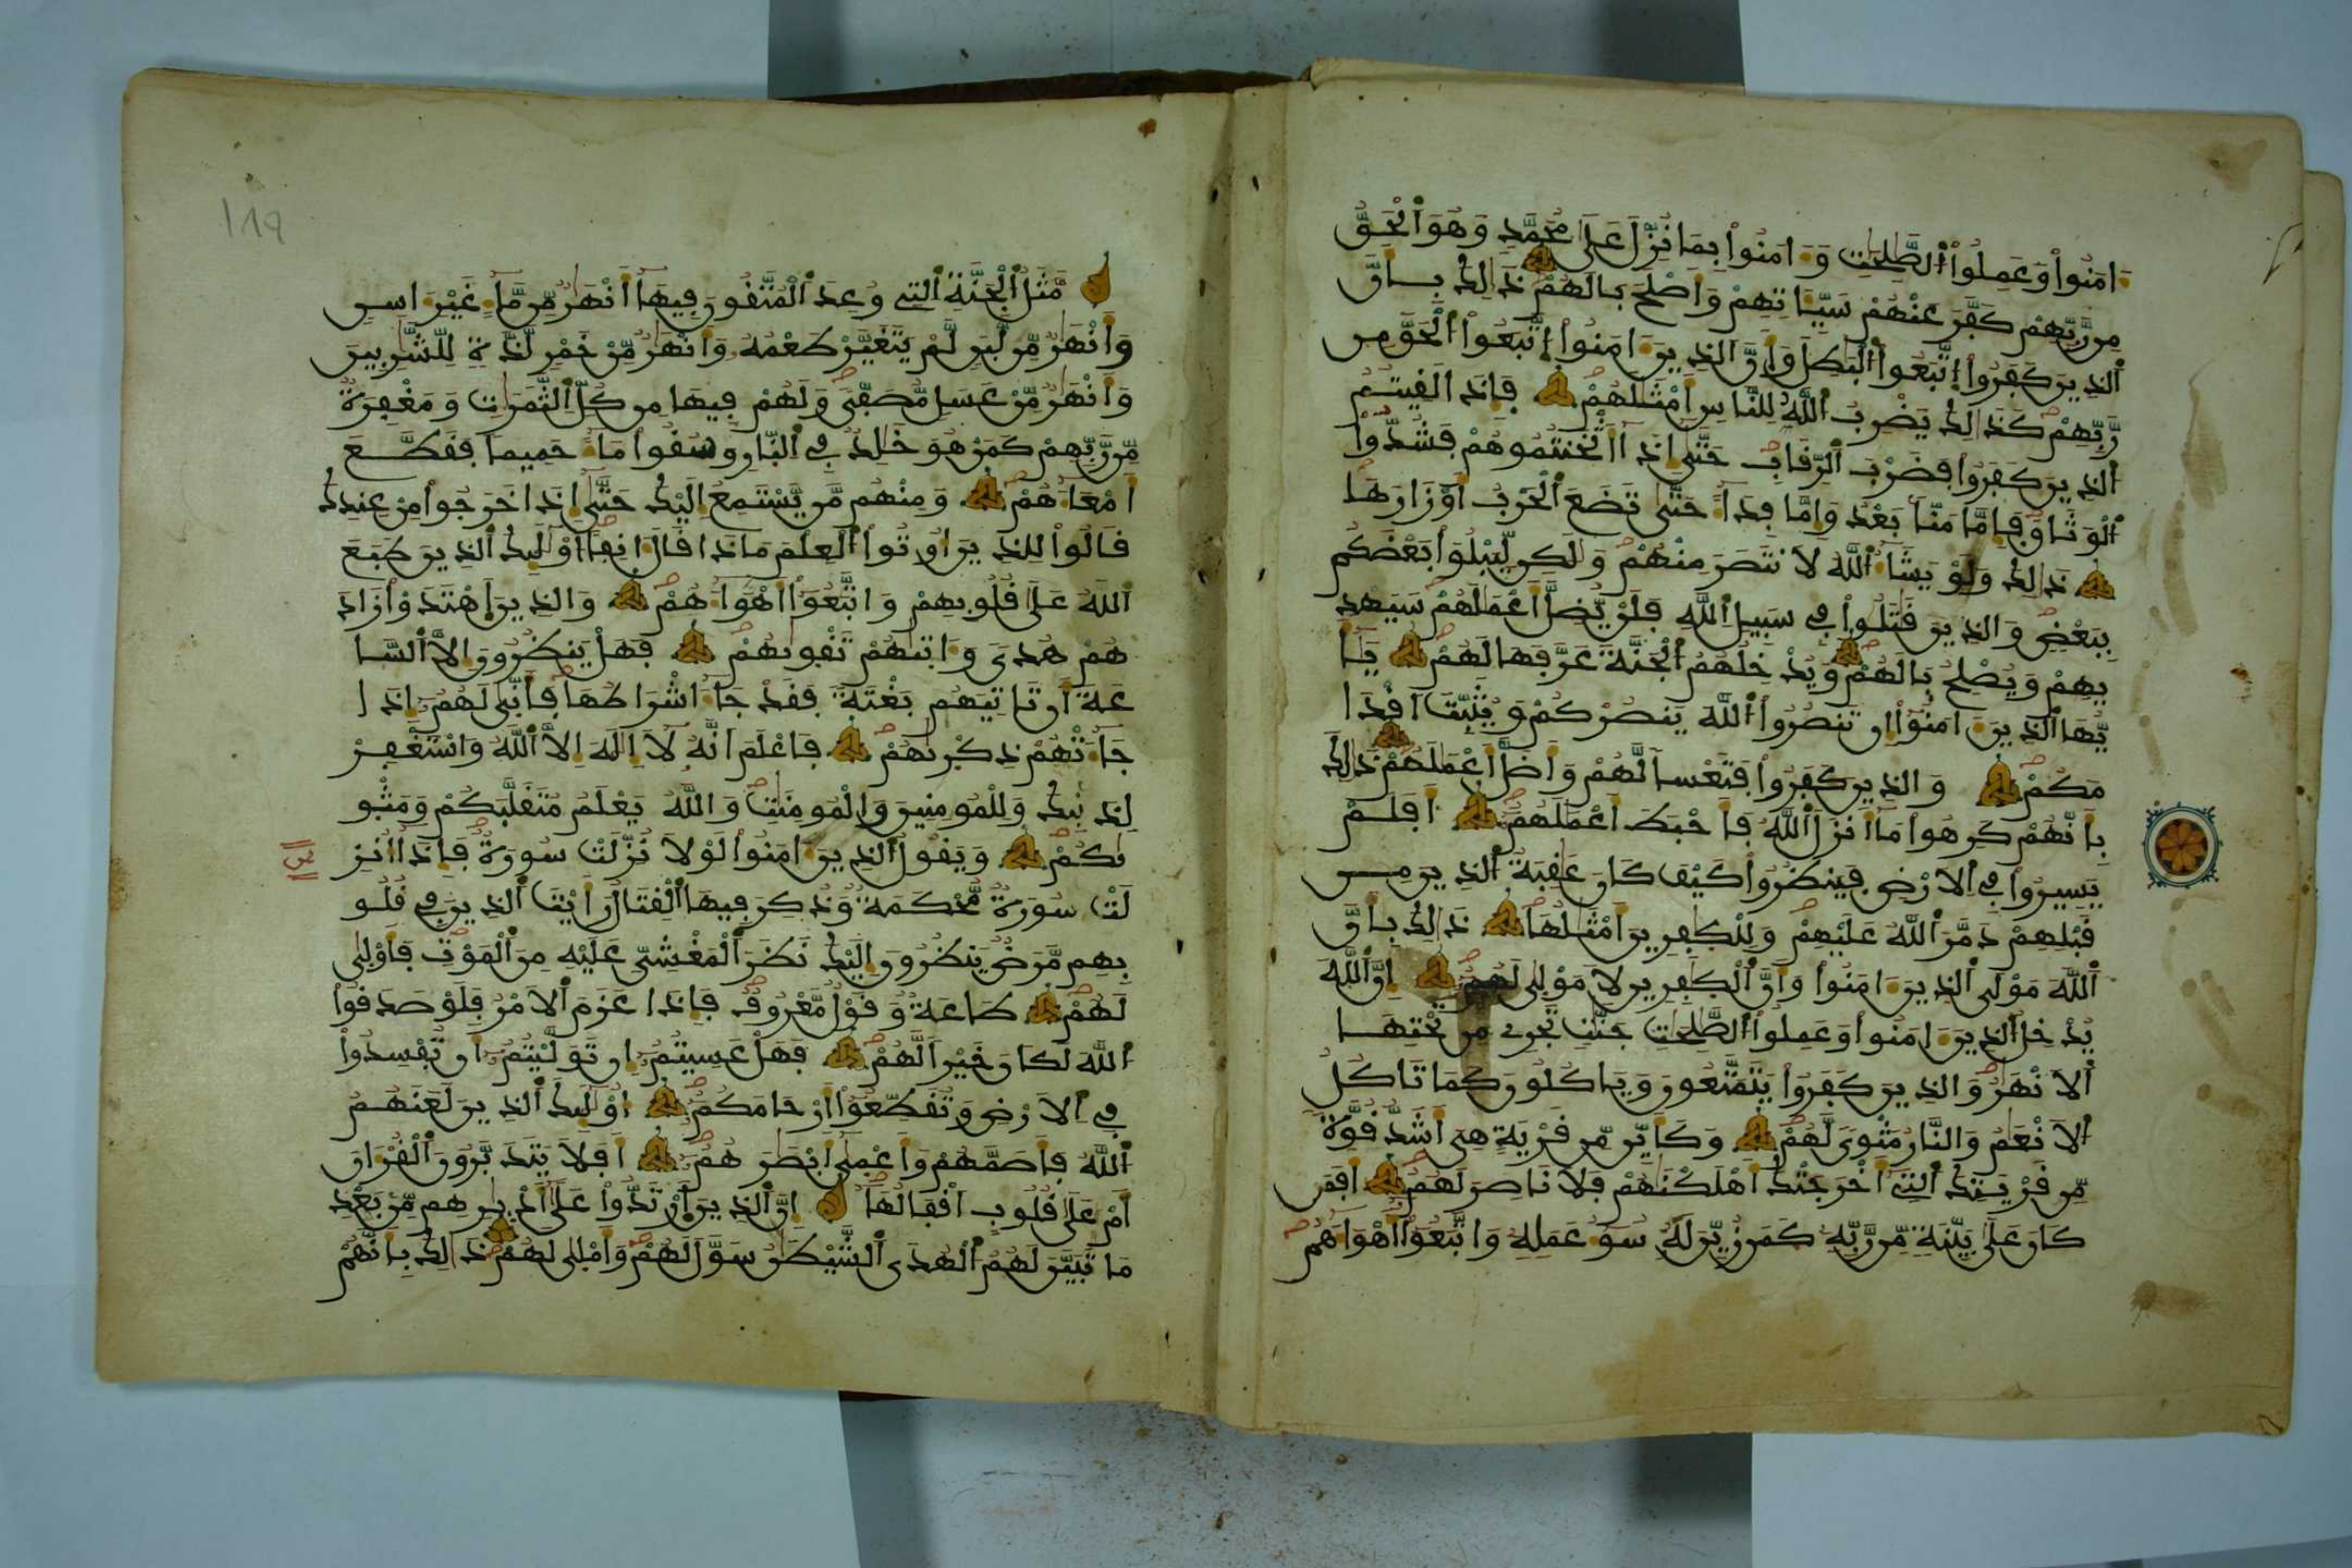 ءَامَنُواْ وَعَمِلُواْ اُ۬لصَّٰلِحَٰتِ وَءَامَنُواْ بِمَا نُزِّلَ عَلَىٰ مُحَمَّدٖ وَهُوَ اَ۬لْحَقُّ
مِن رَّبِّهِمْ كَفَّرَ عَنْهُمْ سَيِّـَٔاتِهِمْ وَأَصْلَحَ بَالَهُمْ ذَٰلِكَ بِأَنَّ
اَ۬لذِينَ كَفَرُواْ اُ۪تَّبَعُواْ اُ۬لْبَٰطِلَ وَأَنَّ اَ۬لذِينَ ءَامَنُواْ اُ۪تَّبَعُواْ اُ۬لْحَقَّ مِن
رَّبِّهِمْ كَذَٰلِكَ يَضْرِبُ اُ۬للَّهُ لِلنَّاسِ أَمْثَٰلَهُمْ فَإِذَا لَقِيتُمُ
اُ۬لذِينَ كَفَرُواْ فَضَرْبَ اَ۬لرِّقَابِ حَتَّىٰ إِذَا أَثْخَنتُمُوهُمْ فَشُدُّواْ
اُ۬لْوَثَاقَ فَإِمَّا مَنّاَۢ بَعْدُ وَإِمَّا فِدَآءً حَتَّىٰ تَضَعَ اَ۬لْحَرْبُ أَوْزَارَهَا
ذَٰلِكَ وَلَوْ يَشَآءُ اُ۬للَّهُ لَانتَصَرَ مِنْهُمْ وَلَٰكِن لِّيَبْلُوَاْ بَعْضَكُم
بِبَعْضٖ وَالذِينَ قَٰتَلُواْ فِے سَبِيلِ اِ۬للَّهِ فَلَنْ يُّضِلَّ أَعْمَٰلَهُمْ سَيَهْدِ
يهِمْ وَيُصْلِحُ بَالَهُمْ وَيُدْخِلُهُمُ اُ۬لْجَنَّةَ عَرَّفَهَا لَهُمْ يَٰٓأَ
يُّهَا اَ۬لذِينَ ءَامَنُوٓاْ إِن تَنصُرُواْ اُ۬للَّهَ يَنصُرْكُمْ وَيُثَبِّتَ اَقْدَا
مَكُمْ وَالذِينَ كَفَرُواْ فَتَعْساٗ لَّهُمْ وَأَضَلَّ أَعْمَٰلَهُمْ ذَٰلِكَ
بِأَنَّهُمْ كَرِهُواْ مَآ أَنزَلَ اَ۬للَّهُ فَأَحْبَطَ أَعْمَٰلَهُمْ أَفَلَمْ
يَسِيرُواْ فِے اِ۬لَارْضِ فَيَنظُرُواْ كَيْفَ كَانَ عَٰقِبَةُ اُ۬لذِينَ مِن
قَبْلِهِمْ دَمَّرَ اَ۬للَّهُ عَلَيْهِمْ وَلِلْكٰ۪فِرِينَ أَمْثَٰلُهَا ذَٰلِكَ بِأَنَّ
اَ۬للَّهَ مَوْلَى اَ۬لذِينَ ءَامَنُواْ وَأَنَّ اَ۬لْكٰ۪فِرِينَ لَا مَوْلَىٰ لَهُمْ إِنَّ اَ۬للَّهَ
يُدْخِلُ اُ۬لذِينَ ءَامَنُواْ وَعَمِلُواْ اُ۬لصَّٰلِحَٰتِ جَنَّٰتٖ تَجْرِے مِن تَحْتِهَا
اَ۬لَانْهَٰرُ وَالذِينَ كَفَرُواْ يَتَمَتَّعُونَ وَيَاكُلُونَ كَمَا تَاكُلُ
اُ۬لَانْعَٰمُ وَالنَّارُ مَثْوىٗ لَّهُمْ وَكَأَيِّن مِّن قَرْيَةٍ هِيَ أَشَدُّ قُوَّةٗ
مِّن قَرْيَتِكَ اَ۬لتِےٓ أَخْرَجَتْكَ أَهْلَكْنَٰهُمْ فَلَا نَاصِرَ لَهُمْ أَفَمَن
كَانَ عَلَىٰ بَيِّنَةٖ مِّن رَّبِّهِۦ كَمَن زُيِّنَ لَهُۥ سُوٓءُ عَمَلِهِۦ وَاتَّبَعُوٓاْ أَهْوَآءَهُمْ
١٨٩
مَّثَلُ اُ۬لْجَنَّةِ اِ۬لتِے وُعِدَ اَ۬لْمُتَّقُونَ فِيهَآ أَنْهَٰرٞ مِّن مَّآءٍ غَيْرِ ءَاسِنٖ
وَأَنْهَٰرٞ مِّن لَّبَنٖ لَّمْ يَتَغَيَّرْ طَعْمُهُۥ وَأَنْهَٰرٞ مِّنْ خَمْرٖ لَّذَّةٖ لِّلشَّٰرِبِينَ
وَأَنْهَٰرٞ مِّنْ عَسَلٖ مُّصَفّىٗ وَلَهُمْ فِيهَا مِن كُلِّ اِ۬لثَّمَرَٰتِ وَمَغْفِرَةٞ
مِّن رَّبِّهِمْ كَمَنْ هُوَ خَٰلِدٞ فِے اِ۬لنّ۪ارِ وَسُقُواْ مَآءً حَمِيماٗ فَقَطَّعَ
أَمْعَآءَهُمْ وَمِنْهُم مَّنْ يَّسْتَمِعُ إِلَيْكَ حَتَّىٰٓ إِذَا خَرَجُواْ مِنْ عِندِكَ
قَالُواْ لِلذِينَ أُوتُواْ اُ۬لْعِلْمَ مَاذَا قَالَ ءَانِفاً أُوْلَٰٓئِكَ اَ۬لذِينَ طَبَعَ
اَ۬للَّهُ عَلَىٰ قُلُوبِهِمْ وَاتَّبَعُوٓاْ أَهْوَآءَهُمْ وَالذِينَ اَ۪هْتَدَوْاْ زَادَ
هُمْ هُدىٗ وَءَات۪يٰهُمْ تَقْو۪يٰهُمْ فَهَلْ يَنظُرُونَ إِلَّا اَ۬لسَّا
عَةَ أَن تَاتِيَهُم بَغْتَةٗ فَقَدْ جَآءَ اشْرَاطُهَا فَأَنّ۪يٰ لَهُمُۥٓ إِذَا
جَآءَتْهُمْ ذِكْر۪يٰهُمْ فَاعْلَمَ اَنَّهُۥ لَآ إِلَٰهَ إِلَّا اَ۬للَّهُ وَاسْتَغْفِرْ
لِذَنۢبِكَ وَلِلْمُومِنِينَ وَالْمُومِنَٰتِ وَاللَّهُ يَعْلَمُ مُتَقَلَّبَكُمْ وَمَثْو
۪يٰكُمْ وَيَقُولُ اُ۬لذِينَ ءَامَنُواْ لَوْلَا نُزِّلَتْ سُورَةٞ فَإِذَآ أُنزِ
لَتْ سُورَةٞ مُّحْكَمَةٞ وَذُكِرَ فِيهَا اَ۬لْقِتَالُ رَأَيْتَ اَ۬لذِينَ فِے قُلُو
بِهِم مَّرَضٞ يَنظُرُونَ إِلَيْكَ نَظَرَ اَ۬لْمَغْشِيِّ عَلَيْهِ مِنَ اَ۬لْمَوْتِ فَأَوْلَىٰ
لَهُمْ طَاعَةٞ وَقَوْلٞ مَّعْرُوفٞ فَإِذَا عَزَمَ اَ۬لَامْرُ فَلَوْ صَدَقُواْ
اُ۬للَّهَ لَكَانَ خَيْراٗ لَّهُمْ فَهَلْ عَسِيتُمُۥٓ إِن تَوَلَّيْتُمُۥٓ أَن تُفْسِدُواْ
فِے اِ۬لَارْضِ وَتُقَطِّعُوٓاْ أَرْحَامَكُمُۥٓ أُوْلَٰٓئِكَ اَ۬لذِينَ لَعَنَهُمُ
اُ۬للَّهُ فَأَصَمَّهُمْ وَأَعْم۪يٰٓ أَبْصَٰرَهُمُۥٓ أَفَلَا يَتَدَبَّرُونَ اَ۬لْقُرْءَانَ
أَمْ عَلَىٰ قُلُوبٍ أَقْفَالُهَا إِنَّ اَ۬لذِينَ اَ۪رْتَدُّواْ عَلَىٰٓ أَدْبٰ۪رِهِم مِّنۢ بَعْدِ
مَا تَبَيَّنَ لَهُمُ اُ۬لْهُدَى اَ۬لشَّيْطَٰنُ سَوَّلَ لَهُمْ وَأَمْلَىٰ لَهُمْ ذَٰلِكَ بِأَنَّهُمْ